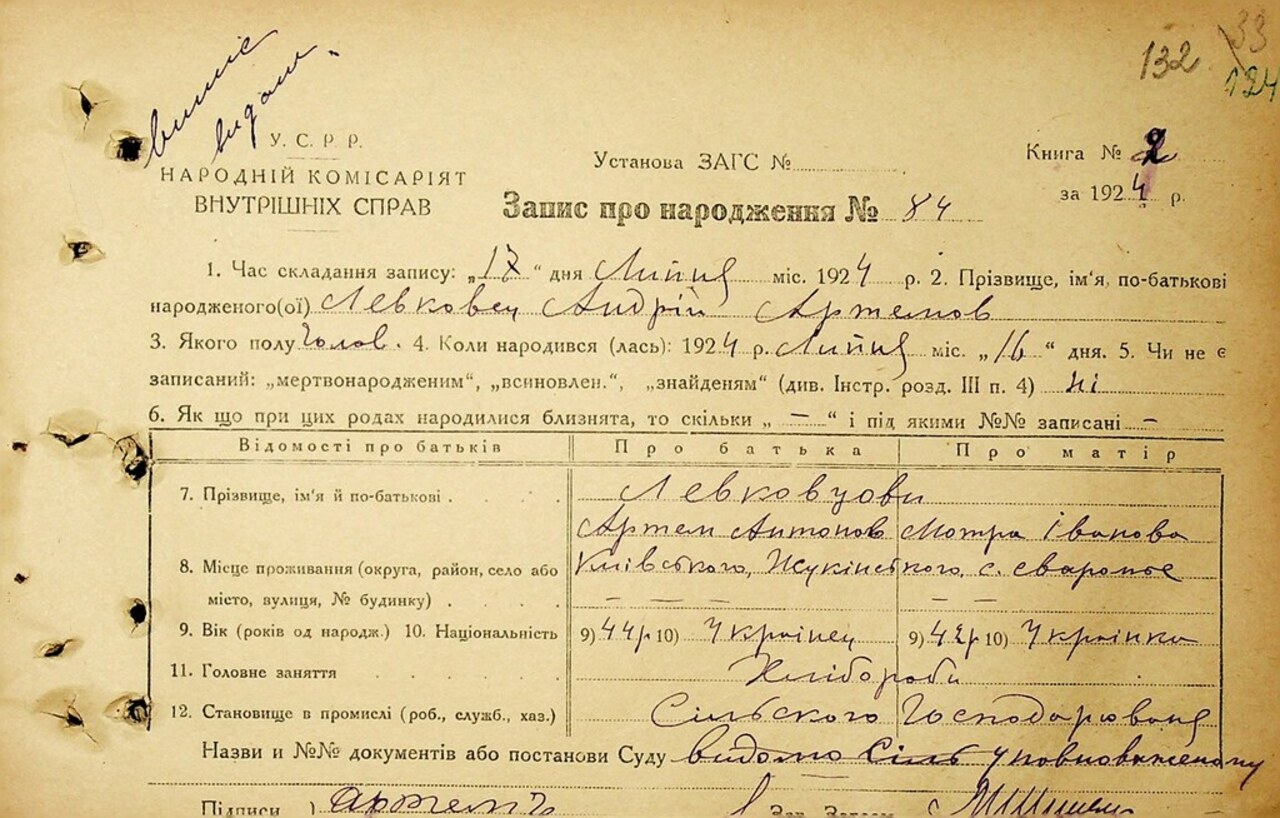 випис
видат
132 33
124
У. С. Р. Р.
НАРОДНІЙ КОМІСАРІЯТ
ВНУТРІШНІХ СПРАВ
Установа ЗАГС №
Книга № 2
за 1924 р.
Запис про народження № 84
1. Час складання запису: „17“ дня Липця міс. 1924 р. 2. Прізвище, ім'я, по-батькові
народженого(ої) Левковец Андрій Артемов
3. Якого полу Чолов. 4. Коли народився (лась): 1924 р. Липця міс. „16“ дня. 5. Чи не є
записаний: „мертвонародженим“, „всиновлен.“, „знайденям“ (див. Інстр. розд. III п. 4) ні
6. Як що при цих родах народилися близнята, то скільки „—“ і під якими №№ записані —
Відомості про батьків Про батька Про матір
7. Прізвище, ім'я й по-батькові Левковцови
Артем Антонов Мотра Іванова
8. Місце проживання (округа, район, село або Київського, Жукінського, с. Сваромье
місто, вулиця, № будинку) — — — — —
9. Вік (років од народж.) 10. Національність 9) 44р 10) Українец 9) 42р 10) Українка
11. Головне заняття Хлібороби
12. Становище в промислі (роб., служб., хаз.) Сільского Господарювання
Назви и №№ документів або постанови Суду видомо Сіль уповноваженому
Підписи ) Артемъ Зав. Загсом